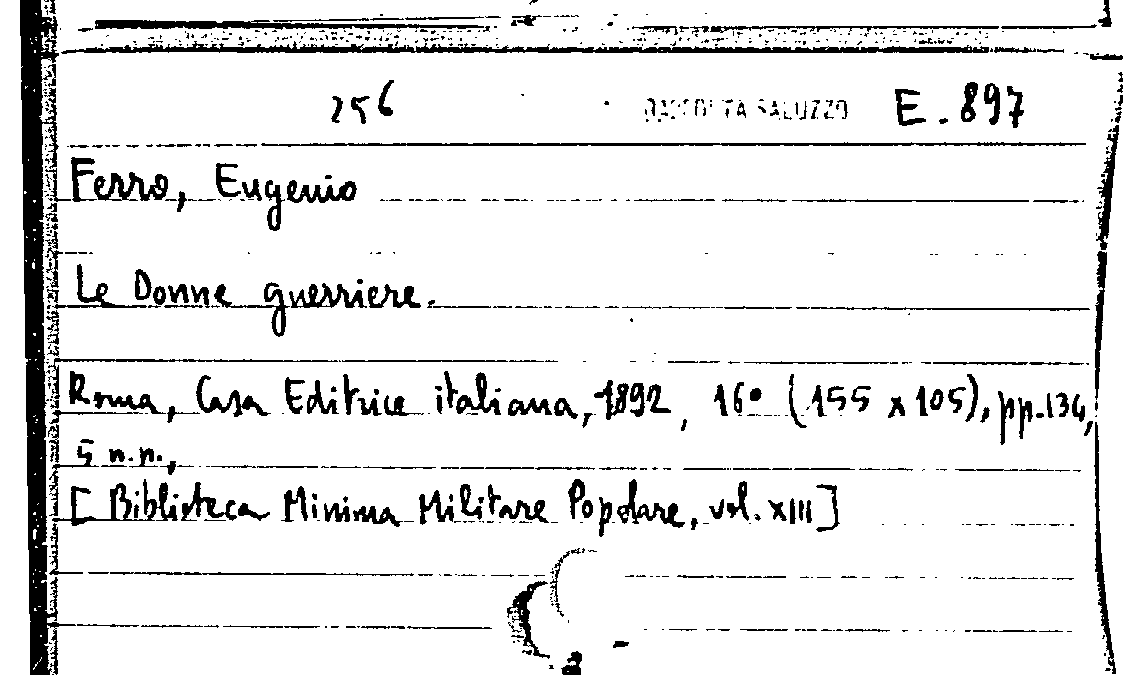 256 RACCOLTA SALUZZO E.897
Ferro, Eugenio
Le Donne guerriere.
Roma, Casa Editrice italiana, 1892, 16° (155 x 105), pp. 134,
5 n.n.,
[Biblioteca Minima Militare Popolare, vol. XIII]